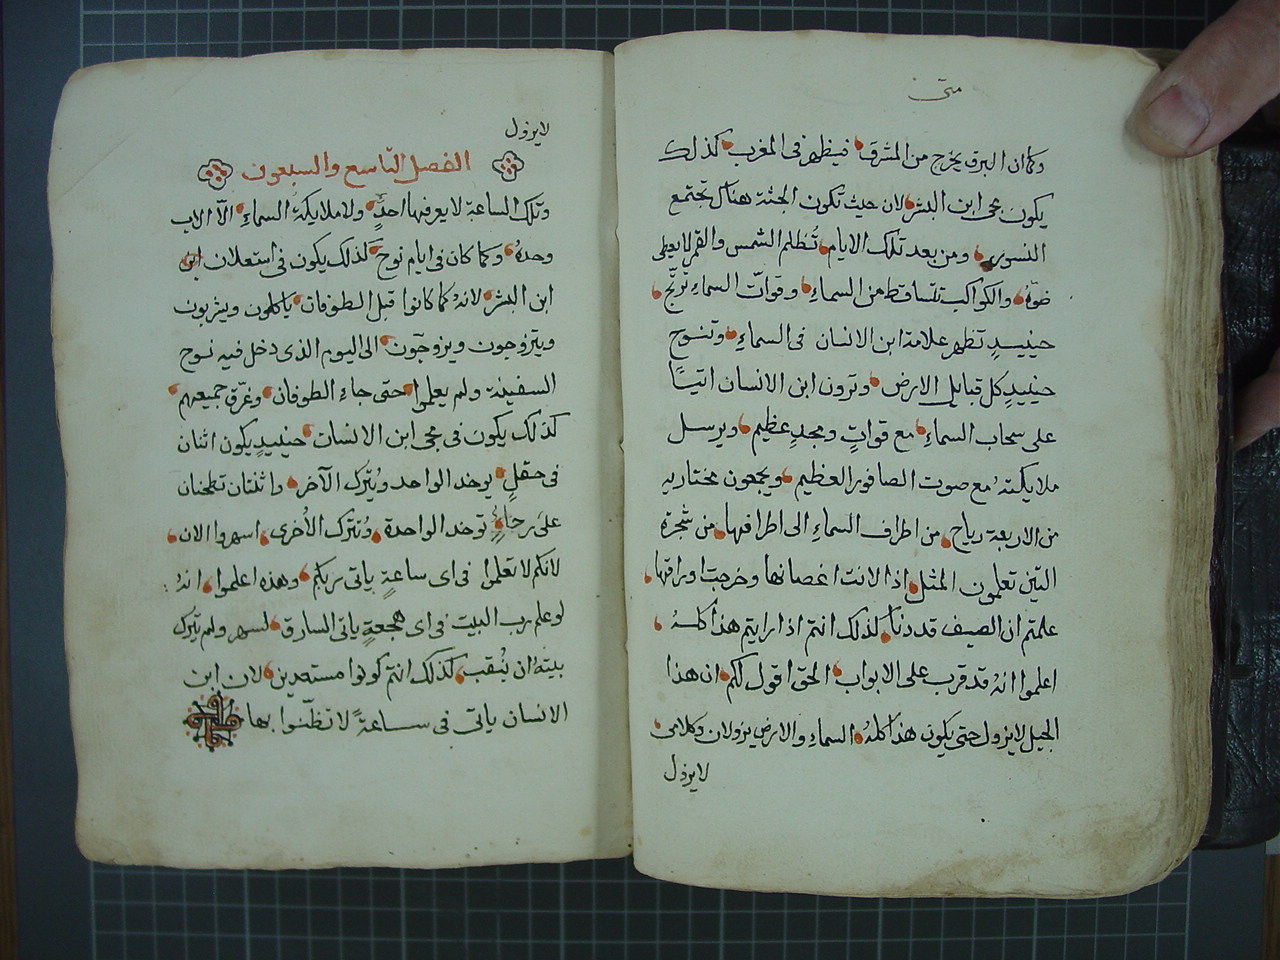 متى
وكما ان البرق يخرج من المشرق فيظهر فى المغرب كذلك
يكون مجى ابن البشر لان حيث تكون الجثة هناك تجتمع
النسور ومن بعد تلك الايام تُظلم الشمس والقمر لا يعطى
ضوهُ والكواكب تتساقط من السماءِ وقوات السماءِ ترتجّ
حينيدٍ تظهر علامة ابن الانسان فى السماءِ وتنوح
حينيدٍ كل قبايل الارض وترون ابن الانسان اتيًا
على سحاب السماءِ مع قواتٍ ومجدٍ عظيم ويرسل
ملايكتهُ مع صوت الصافور العظيم ويجمعون مختاريه
من الاربعة رياح من اطراف السماءِ الى اطرافها من شجرة
التين تعلمون المثل اذا لانت اغصانها وخرجت اوراقها
علمتم ان الصيف قد دنا كذلك انتم اذا رايتم هذا كلهُ
اعلموا انهُ قد قرب على الابواب الحق اقول لكم ان هذا
الجيل لا يزول حتى يكون هذا كلهُ السماءِ والارض يزولان وكلامى
لا يزول
لا يزول
الفصل التاسع والسبعون
وتلك الساعة لا يعرفها احدٌ ولا ملايكة السماءِ الّا الاب
وحدهُ وكما كان فى ايام نوح كذلك يكون فى استعلان ابن
ابن البشر لانهُ كما كانوا قبل الطوفان ياكلون ويشربون
ويتزوجون ويزوجون الى اليوم الذى دخل فيه نوح
السفينة ولم يعلموا حتى جاءَ الطوفان وغرّق جميعهم
كذلك يكون فى مجى ابن الانسان حينيدٍ يكون اثنان
فى حقلٍ يوخد الواحد ويُترك الآخر واثنتان تطحنان
على رحاءٍ توخد الواحدة وتُترك الأخرى اسهروا الان
لانكم لا تعلموا فى اى ساعةٍ ياتى ربكم وهذه اعلموا انهُ
لو علم رب البيت فى اى هجعةٍ ياتى السارق لسهر ولم يترك
بيتهُ ان يُنقب كذلك انتم كونوا مستعدين لان ابن
الانسان ياتى فى ساعةً لا تظّنوا بها